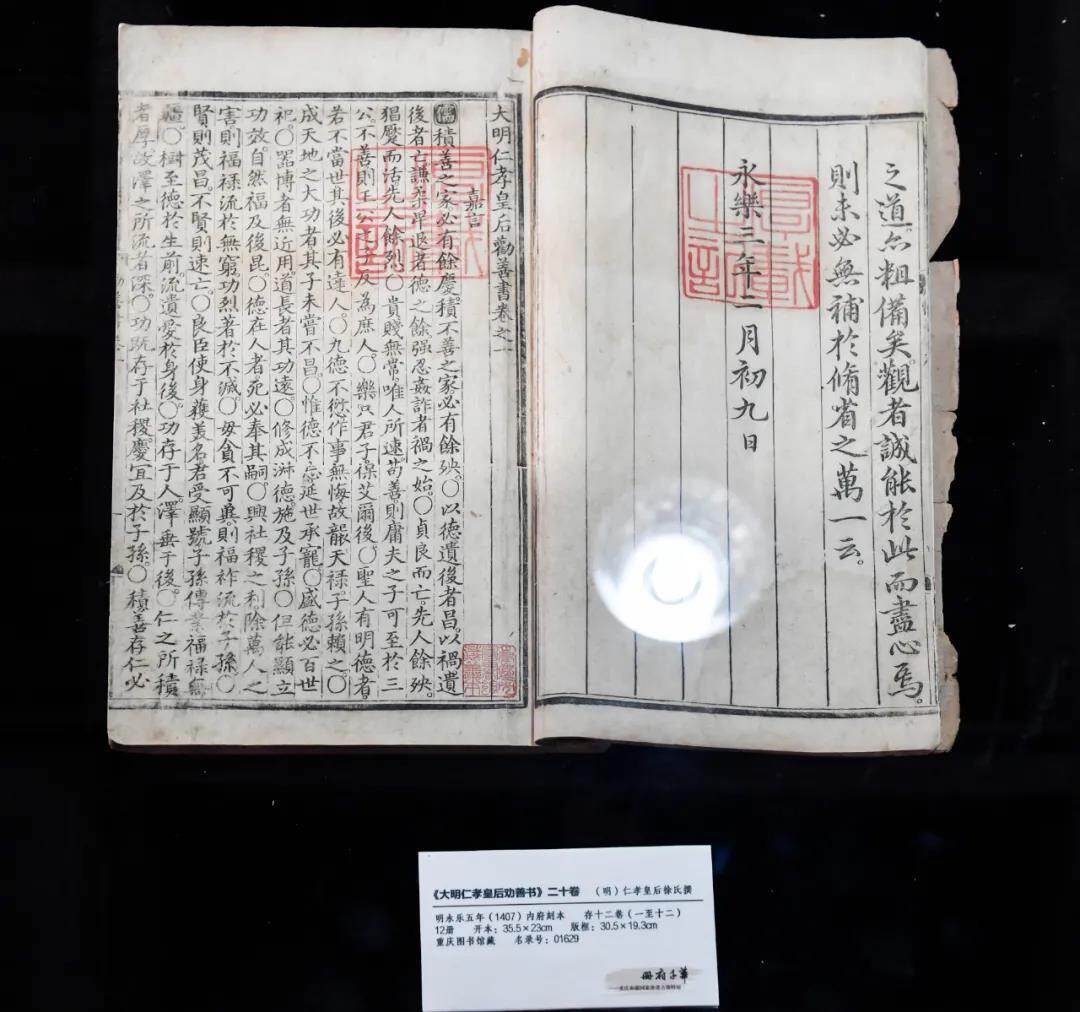 之道。亦粗備矣。觀者誠能於此而盡心焉。
則未必無補於脩省之萬一云。
永樂三年二月初九日
大明仁孝皇后勸善書卷之一
嘉言
儒積善之家必有餘慶。積不善之家必有餘殃。○以德遺後者昌。以禍遺
後者亡。謙柔卑退者德之餘。强忍姦詐者禍之始。○貞良而亡。先人餘殃。
猖蹷而活。先人餘烈。○貴賤無常。唯人所速。苟善。則庸夫之子可至於三
公。不善則王公之子反為庶人。○樂只君子。保艾爾後。○聖人有明德者。
若不當世。其後必有達人。○九德不愆。作事無悔。故襲天祿。子孫賴之。○
成天地之大功者。其子未嘗不昌。○惟德不忘。延世承寵。○盛德必百世
祀。○器博者無近用。道長者其功遠。○修成淋德。施及子孫。○但能顯立
功效。自然福及後昆。○德在人者。死必奉其嗣。○興社稷之利。除萬人之
害。則福祿流於無窮。功烈著於不滅。○毋貪不可冀。則福祚流於子孫。○
賢則茂昌。不賢則速亡。○良臣使身獲美名。君受顯號。子孫傳業。福祿無
疆。○樹至德於生前。流遺愛於身後。○功存于人。澤垂于後。○仁之所積
者厚。故澤之所流者深。○功既存于社稷。慶宜及於子孫。○積善存仁。必
《大明仁孝皇后劝善书》二十卷 （明）仁孝皇后徐氏撰
明永乐五年（1407）内府刻本 存十二卷（一至十二）
12册 开本：35.5×23cm 版框：30.5×19.3cm
重庆图书馆藏 名录号：01629
册府千华